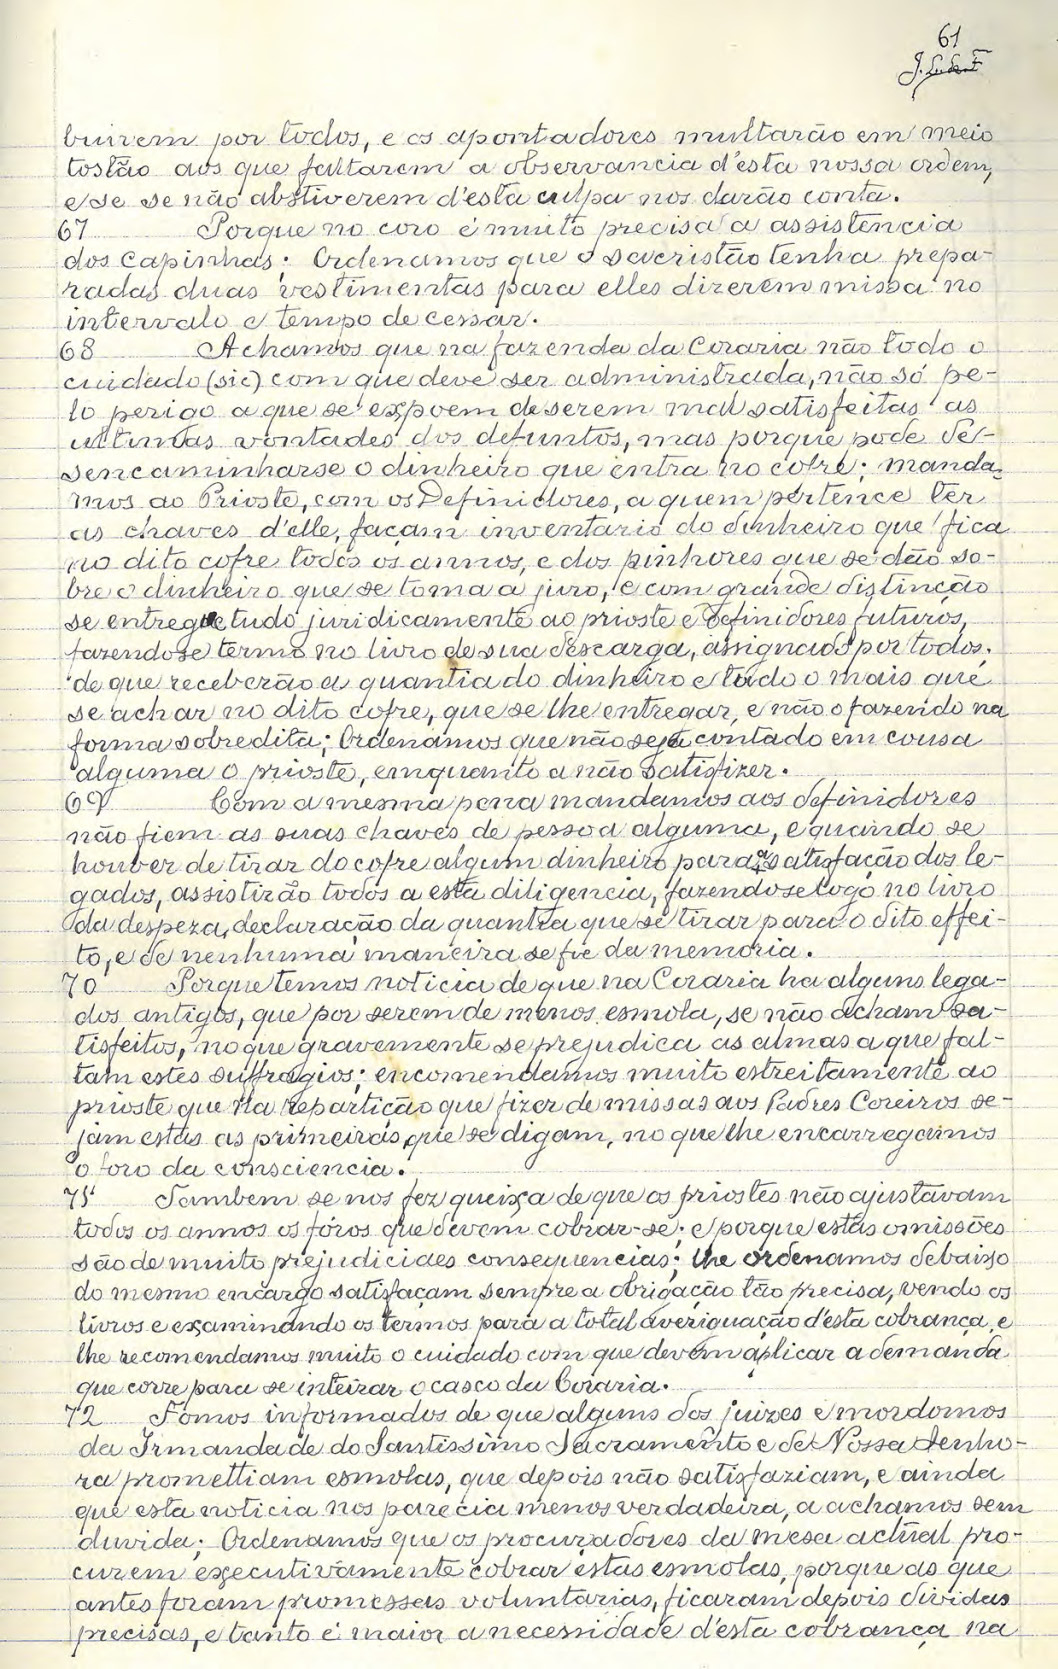 61
buirem por todos, e os apontadores multarão em meio
tostão aos que faltarem a observancia d'esta nossa ordem,
e se se não abstiverem d'esta culpa nos darão conta.
67 Porque no coro é muito precisa a assistencia
dos capinhas; Ordenamos que o sacristão tenha prepa-
radas duas vestimentas para elles dizerem missa no
intervalo e tempo de cessar.
68 Achamos que na fazenda da Coraria não todo o
cuidado (sic) com que deve ser administrada, não só pe-
lo perigo a que se expoem de serem mal satisfeitas as
ultimas vontades dos defuntos, mas porque pode de-
sencaminharse o dinheiro que entra no cofre; manda-
mos ao Prioste, com os Definidores, a quem pertence ter
as chaves d'elle, façam inventario do dinheiro que fica
no dito cofre todos os annos, e dos pinhores que se dão so-
bre o dinheiro que se toma a juro, e com grande distincção
se entregue tudo juridicamente ao prioste e definidores futuros,
fazendose termo no livro de sua descarga, assignado por todos,
de que receberão a quantia do dinheiro e todo o mais que
se achar no dito cofre, que se lhe entregar, e não o fazendo na
forma sobredita; Ordenamos que não seja contado em cousa
alguma o prioste, emquanto a não satisfizer.
69 Com a mesma pena mandamos aos definidores
não fiem as suas chaves de pessoa alguma, e quando se
houver de tirar do cofre algum dinheiro para a satisfação dos le-
gados, assistirão todos a esta diligencia, fazendose logo no livro
da despeza, declaração da quantia que se tirar para o dito effei-
to, e de nenhuma maneira se fie da memoria.
70 Porque temos noticia de que na Coraria ha alguns lega-
dos antigos, que por serem de menos esmola, se não acham sa-
tisfeitos, no que gravemente se prejudica as almas a que fal-
tam estes suffragios; encomendamos muito estreitamente ao
prioste que na repartição que fizer de missas aos Padres Coreiros se-
jam estas as primeiras que se digam, no que lhe encarregamos
o foro da consciencia.
71 Tambem se nos fez queixa de que os priostes não ajustavam
todos os annos os fóros que devem cobrar-se; e porque estas omissões
são de muito prejudiciaes consequencias; lhe ordenamos debaixo
do mesmo encargo satisfaçam sempre a obrigação tão precisa, vendo os
livros e examinando os termos para a total averiguação d'esta cobrança, e
lhe recomendamos muito o cuidado com que devem aplicar a demanda
que corre para se inteirar o casco da Coraria.
72 Fomos informados de que alguns dos juizes e mordomos
da Irmandade do Santissimo Sacramento e de Nossa Senho-
ra promettiam esmolas, que depois não satisfaziam, e ainda
que esta noticia nos parecia menos verdadeira, a achamos sem
duvida; Ordenamos que os procuradores da mesa actual pro-
curem executivamente cobrar estas esmolas, porque as que
antes foram promessas voluntarias, ficaram depois dividas
precisas, e tanto é maior a necessidade d'esta cobrança na